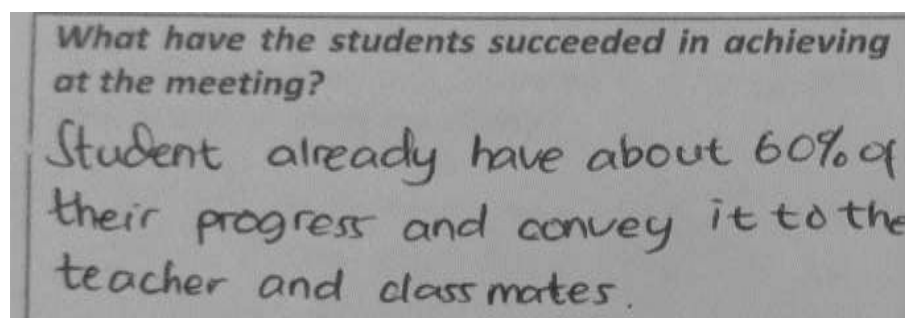 What have the students succeeded in achieving
at the meeting?
Student already have about 60% of
their progress and convey it to the
teacher and classmates.